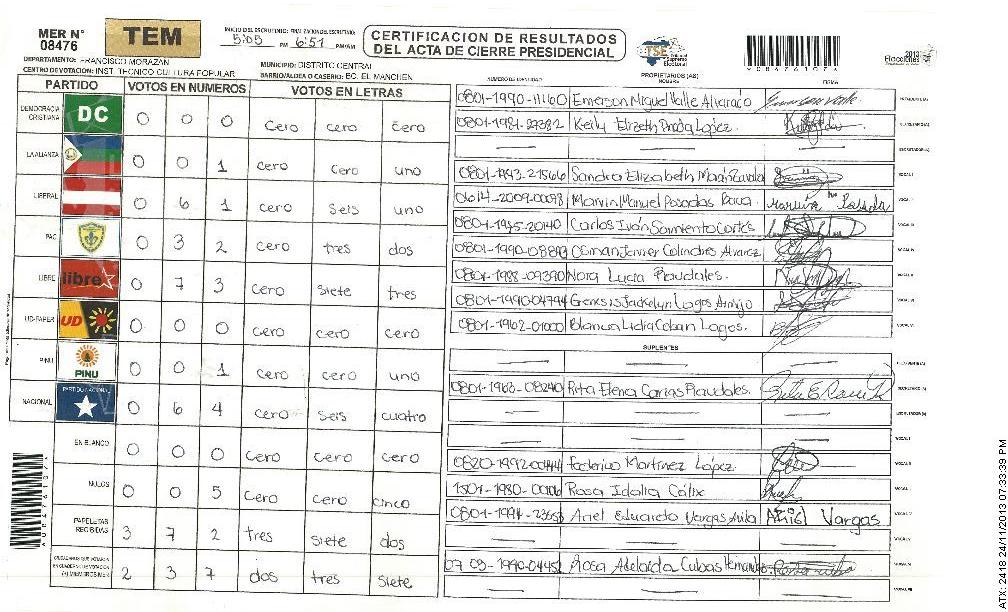 MER N° 08476
TEM
INICIO DEL ESCRUTINIO: 5:05 PM
6:51 PM/AM
CERTIFICACION DE RESULTADOS
DEL ACTA DE CIERRE PRESIDENCIAL
TSE Tribunal Supremo Electoral
2013 Elecciones
DEPARTAMENTO: FRANCISCO MORAZAN
MUNICIPIO: DISTRITO CENTRAL
CENTRO DE VOTACION: INST. TECNICO CULTURA POPULAR
BARRIO/ALDEA O CASERIO: BO. EL MANCHEN
PARTIDO VOTOS EN NUMEROS VOTOS EN LETRAS
DEMOCRACIA CRISTIANA DC 0 0 0 cero cero cero
LA ALIANZA 0 0 1 cero cero uno
LIBERAL 0 6 1 cero seis uno
PAC 0 3 2 cero tres dos
LIBRE libre 0 7 3 cero siete tres
UD-FAPER UD 0 0 0 cero cero cero
PINU PINU 0 0 1 cero cero uno
NACIONAL PARTIDO NACIONAL 0 6 4 cero seis cuatro
EN BLANCO 0 0 0 cero cero cero
NULOS 0 0 5 cero cero cinco
PAPELETAS RECIBIDAS 3 7 2 tres siete dos
CIUDADANOS QUE VOTARON EN CENTRO DE VOTACION (+) MIEMBROS MER 2 3 7 dos tres siete
NUMERO DE IDENTIDAD PROPIETARIOS (AS) NOMBRE FIRMA
0801-1990-11160 Emerson Miguel Valle Alvarado PRESIDENTE (A)
Keily Elizeth Pineda López. SECRETARIO (A)
Sandra Elizabeth Marín Zavala VOCAL I
Marvin Manuel Posadas
Carlos Iván Sarmiento Cortés
Osman Javier Colindres Alvarez
Nora Lucia
Lagos Armijo
0801-1962-01000 Blanca Lidia Coban Lagos.
SUPLENTES
0801-1963-08240 Rita Elena Carias SECRETARIO (A)
Federico Martinez López
Rosa Idalia Cálix
Ariel Eduardo Vargas Avila Ariel Vargas
Rosa Adelaida Cubas
ATX: 2418 24/11/2013 07:33:39 PM